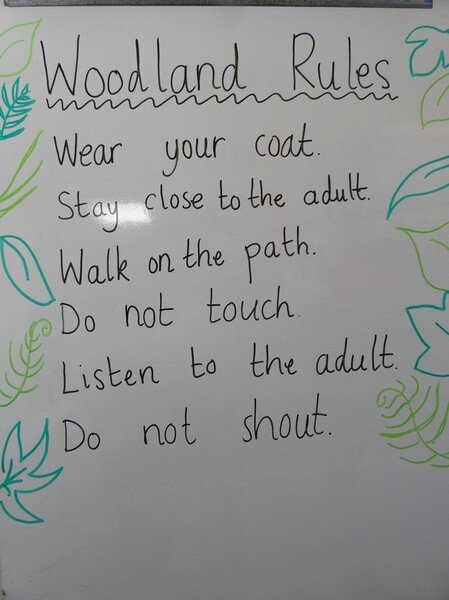 Woodland Rules
Wear your coat.
Stay close to the adult.
Walk on the path.
Do not touch.
Listen to the adult.
Do not shout.